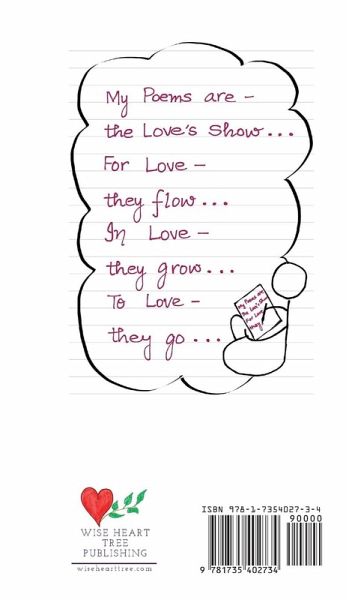 My Poems are –
the Love's Show...
For Love –
they flow...
In Love –
they grow...
To Love –
they go...
My Poems are
The Love's Show
For Love
they
WISE HEART
TREE
PUBLISHING
wisehearttree.com
ISBN 978-1-7354027-3-4
90000
9 781735 402734